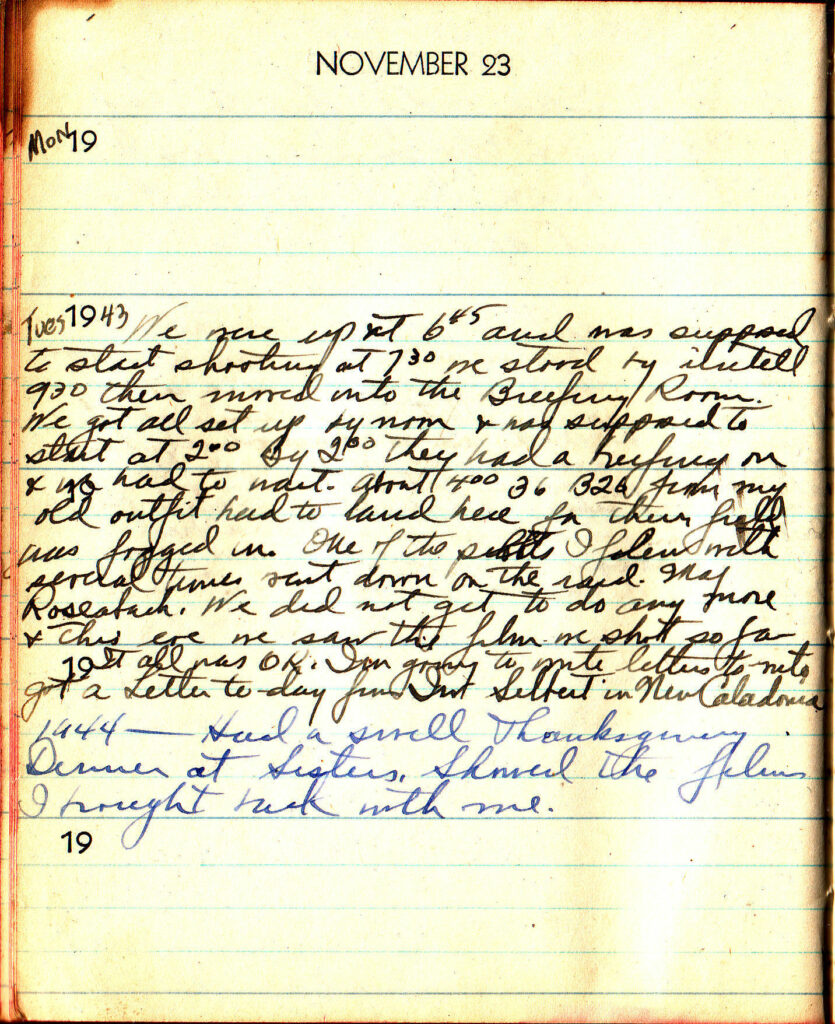 NOVEMBER 23
Mon 19
Tues 1943 We were up at 6 45 and was supposed
to start shooting at 7 30 we stood by
9 30 then moved into the Breefing Room.
We got all set up by noon & was supposed to
start at 2 00 By 2 00 they had a breefing on
& we had to wait. about 4 00 36 B26 from my
19
old outfit had to land here for their field
was fogged in. One of the pilots I with
several times went down on the raid. Maj
We did not get to do any more
& this eve we saw the film we shot so far
19 It all was OK. I'm going to write letters to-nite
got a Letter to-day from in New Caladonia
1944 — Had a swell Thanksgiving
Dinner at Sisters. Showed the films
I brought back with me.
19